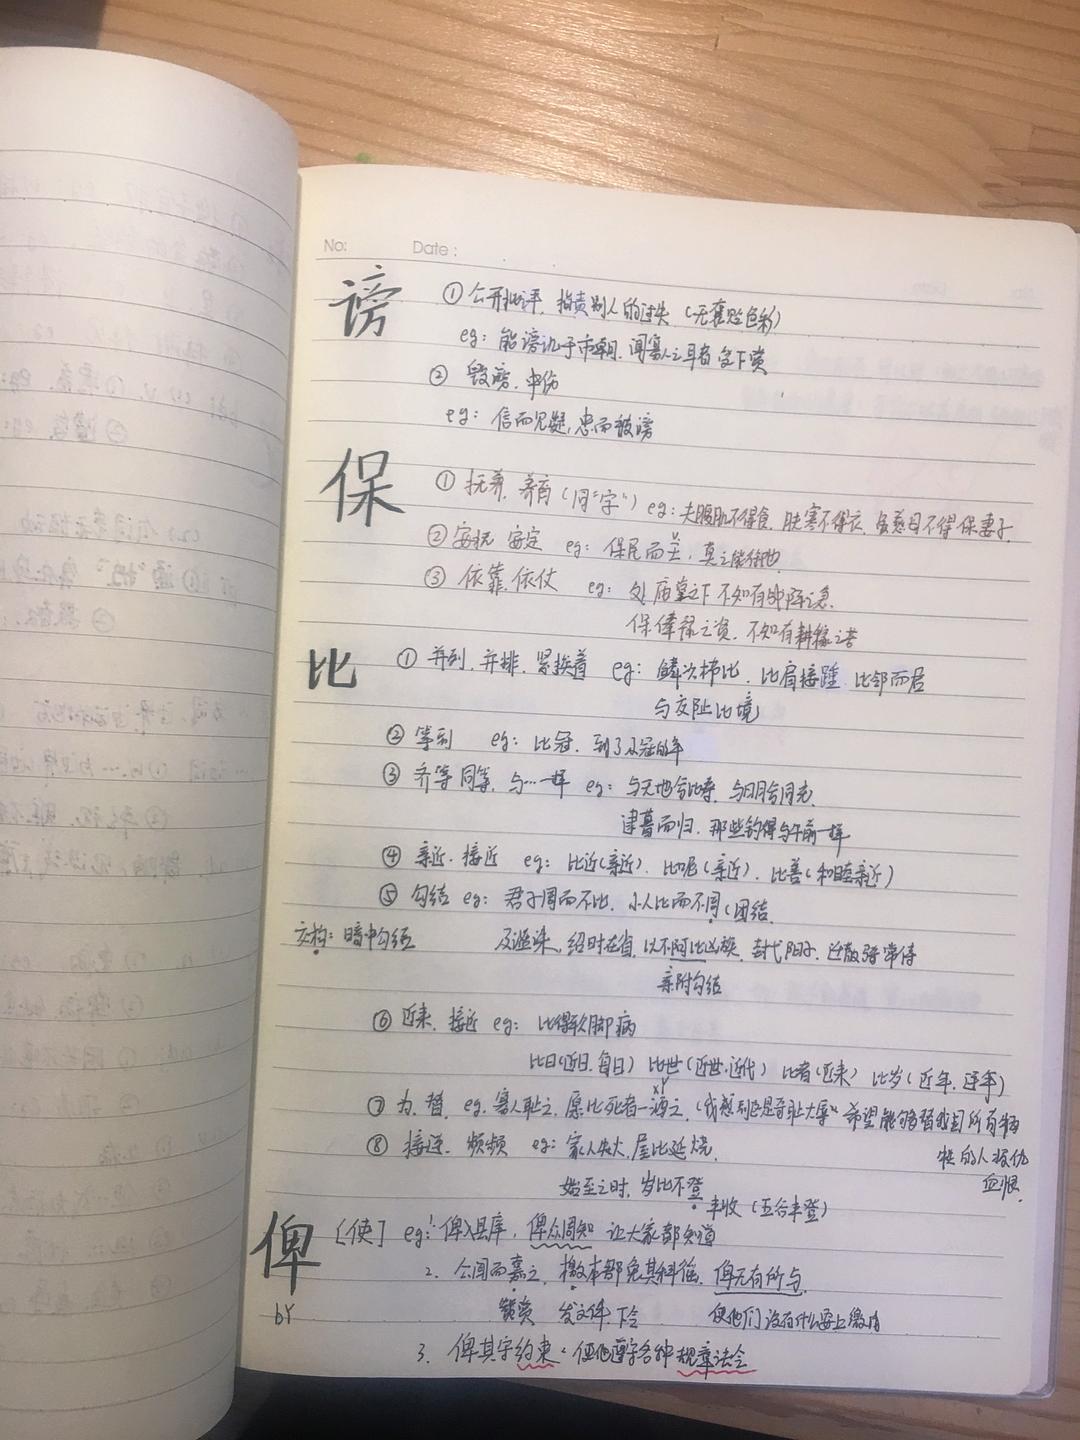 No:
Date:
谤 ① 公开批评,指责别人的过失 (无褒贬色彩)
eg: 能谤讥于市朝,闻寡人之耳者,受下赏
② 毁谤.中伤
eg: 信而见疑,忠而被谤
保 ① 抚养,养育 (同"字") eg: 夫腹肌不得食,肤寒不得衣,虽慈母不得保妻子.
② 安抚 安定 eg: 保民而王,莫之能御也
③ 依靠.依仗 eg: 处庙堂之下不知有战阵之急.
保俸禄之资,不知有耕稼之苦
比 ① 并列.并排.紧挨着 eg: 鳞次栉比,比肩接踵 比邻而居
与交趾比境
② 等到 eg: 比冠.到了及冠的年
③ 齐等 同等,与…一样 eg: 与天地兮比寿,与日月兮同光.
逮暮而归.那些钓得与午前一样
④ 亲近.接近 eg: 比近(亲近).比昵(亲近).比善(和睦亲近)
⑤ 勾结 eg: 君子周而不比,小人比而不周(团结.
交构: 暗中勾结
绍时在省,以不阿比凶族,封弋阳子,迁散骑常侍
亲附勾结
⑥ 近来,接近 eg: 比得软脚病
比日(近日.每日) 比世(近世.近代) 比者(近来) 比岁(近年.连年)
⑦ 为.替. eg. 寡人耻之,愿比死者一洒之.
xǐ
希望能够替我国所有牺
牲的人报仇
血恨.
⑧ 接连.频频 eg: 家人失火,屋比延烧.
始至之时,岁比不登
丰收(五谷丰登)
俾 [使] eg: 1. 俾入县库,俾众周知 让大家都知道
bǐ
2. 公闻而嘉之,檄本部免其科徭.俾无有所与.
赞赏 发文件.下令 使他们没有什么要上缴的
3. 俾其守约束: 使他遵守各种规章法令